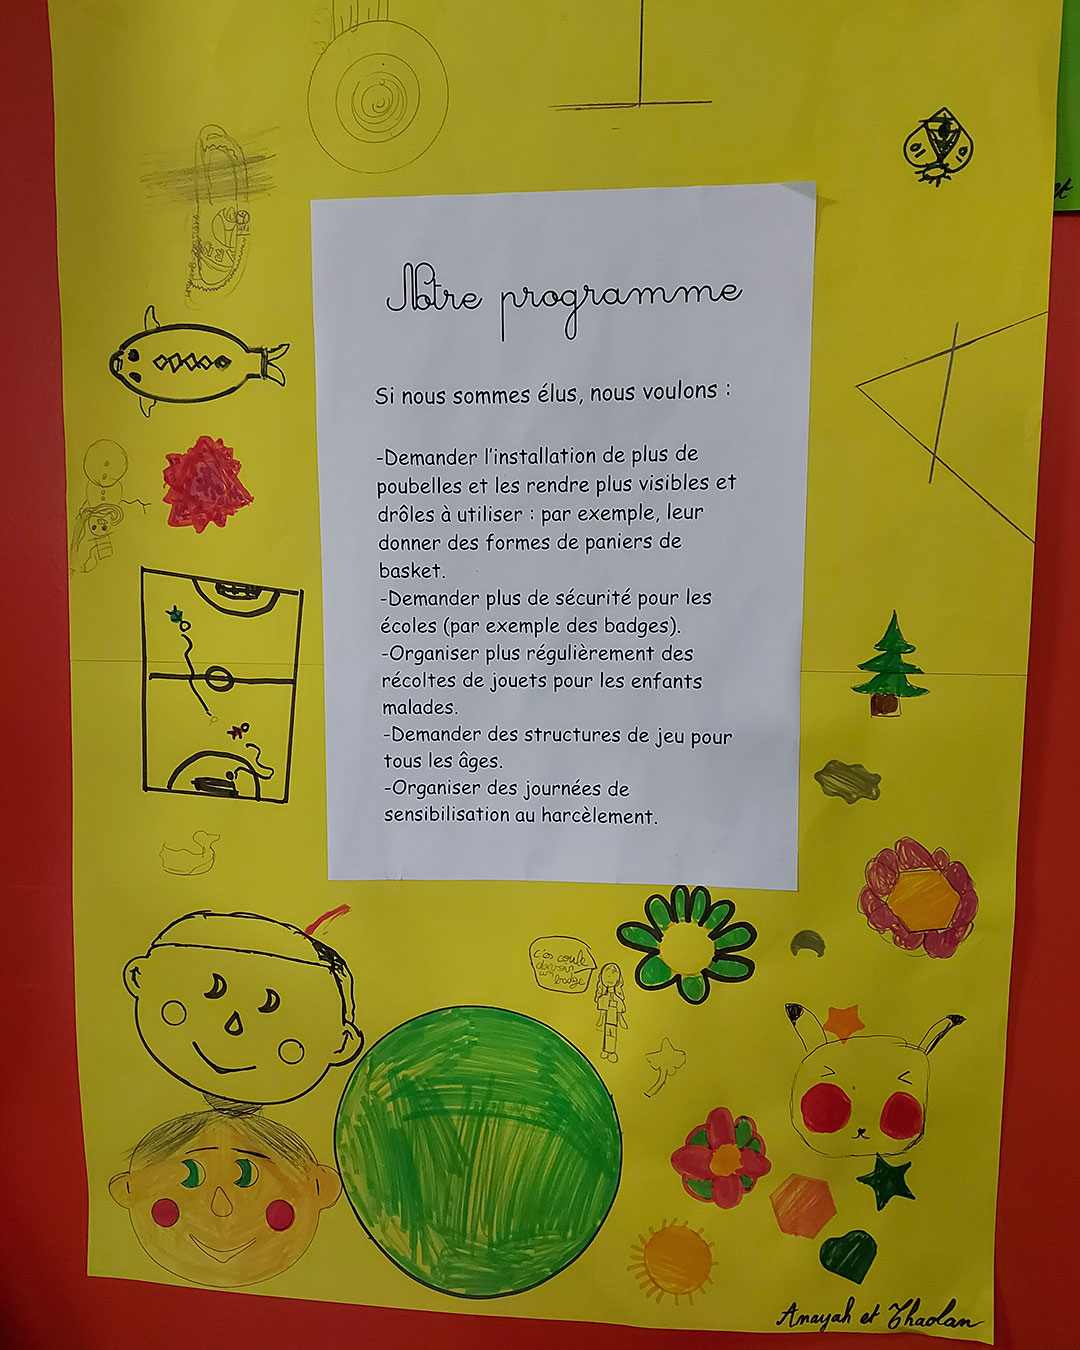 Notre programme
Si nous sommes élus, nous voulons :
-Demander l'installation de plus de
poubelles et les rendre plus visibles et
drôles à utiliser : par exemple, leur
donner des formes de paniers de
basket.
-Demander plus de sécurité pour les
écoles (par exemple des badges).
-Organiser plus régulièrement des
récoltes de jouets pour les enfants
malades.
-Demander des structures de jeu pour
tous les âges.
-Organiser des journées de
sensibilisation au harcèlement.
un
badge
Anayah et Thaolan